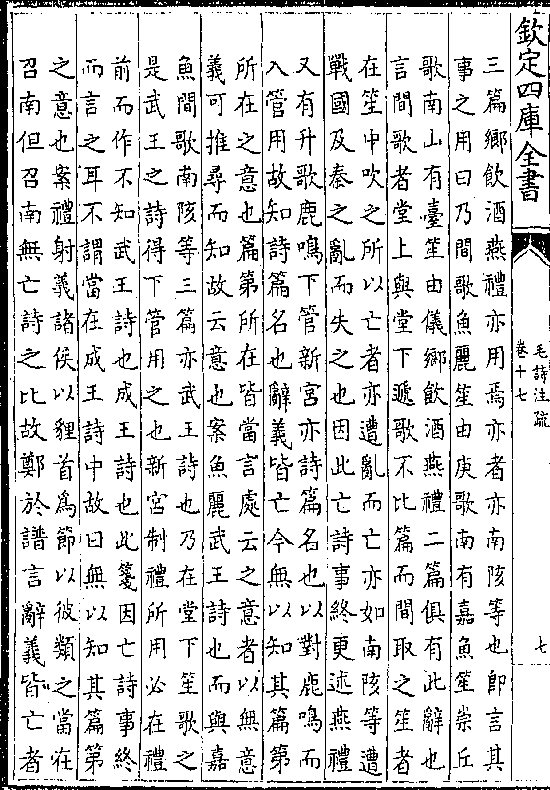 欽定四庫全書
毛詩注疏
卷十七
七
三篇鄉飲酒燕禮亦用焉亦者亦南陔等也即言其
事之用曰乃間歌魚麗笙由庚歌南有嘉魚笙崇丘
歌南山有臺笙由儀鄉飲酒燕禮二篇俱有此辭也
言間歌者堂上與堂下遞歌不比篇而間取之笙者
在笙中吹之所以亡者亦遭亂而亡亦如南陔等遭
戰國及秦之亂而失之也因此亡詩事終更述燕禮
又有升歌鹿鳴下管新宮亦詩篇名也以對鹿鳴而
入管用故知詩篇名也辭義皆亡今無以知其篇第
所在之意也篇第所在皆當言處云之意者以無意
義可推尋而知故云意也案魚麗武王詩也而與嘉
魚間歌南陔等三篇亦武王詩也乃在堂下笙歌之
是武王之詩得下管用之也新宮制禮所用必在禮
前而作不知武王詩也成王詩也此箋因亡詩事終
而言之耳不謂當在成王詩中故曰無以知其篇第
之意也案禮射義諸侯以貍首為節以彼類之當在
召南但召南無亡詩之比故鄭於譜言辭義皆亡者